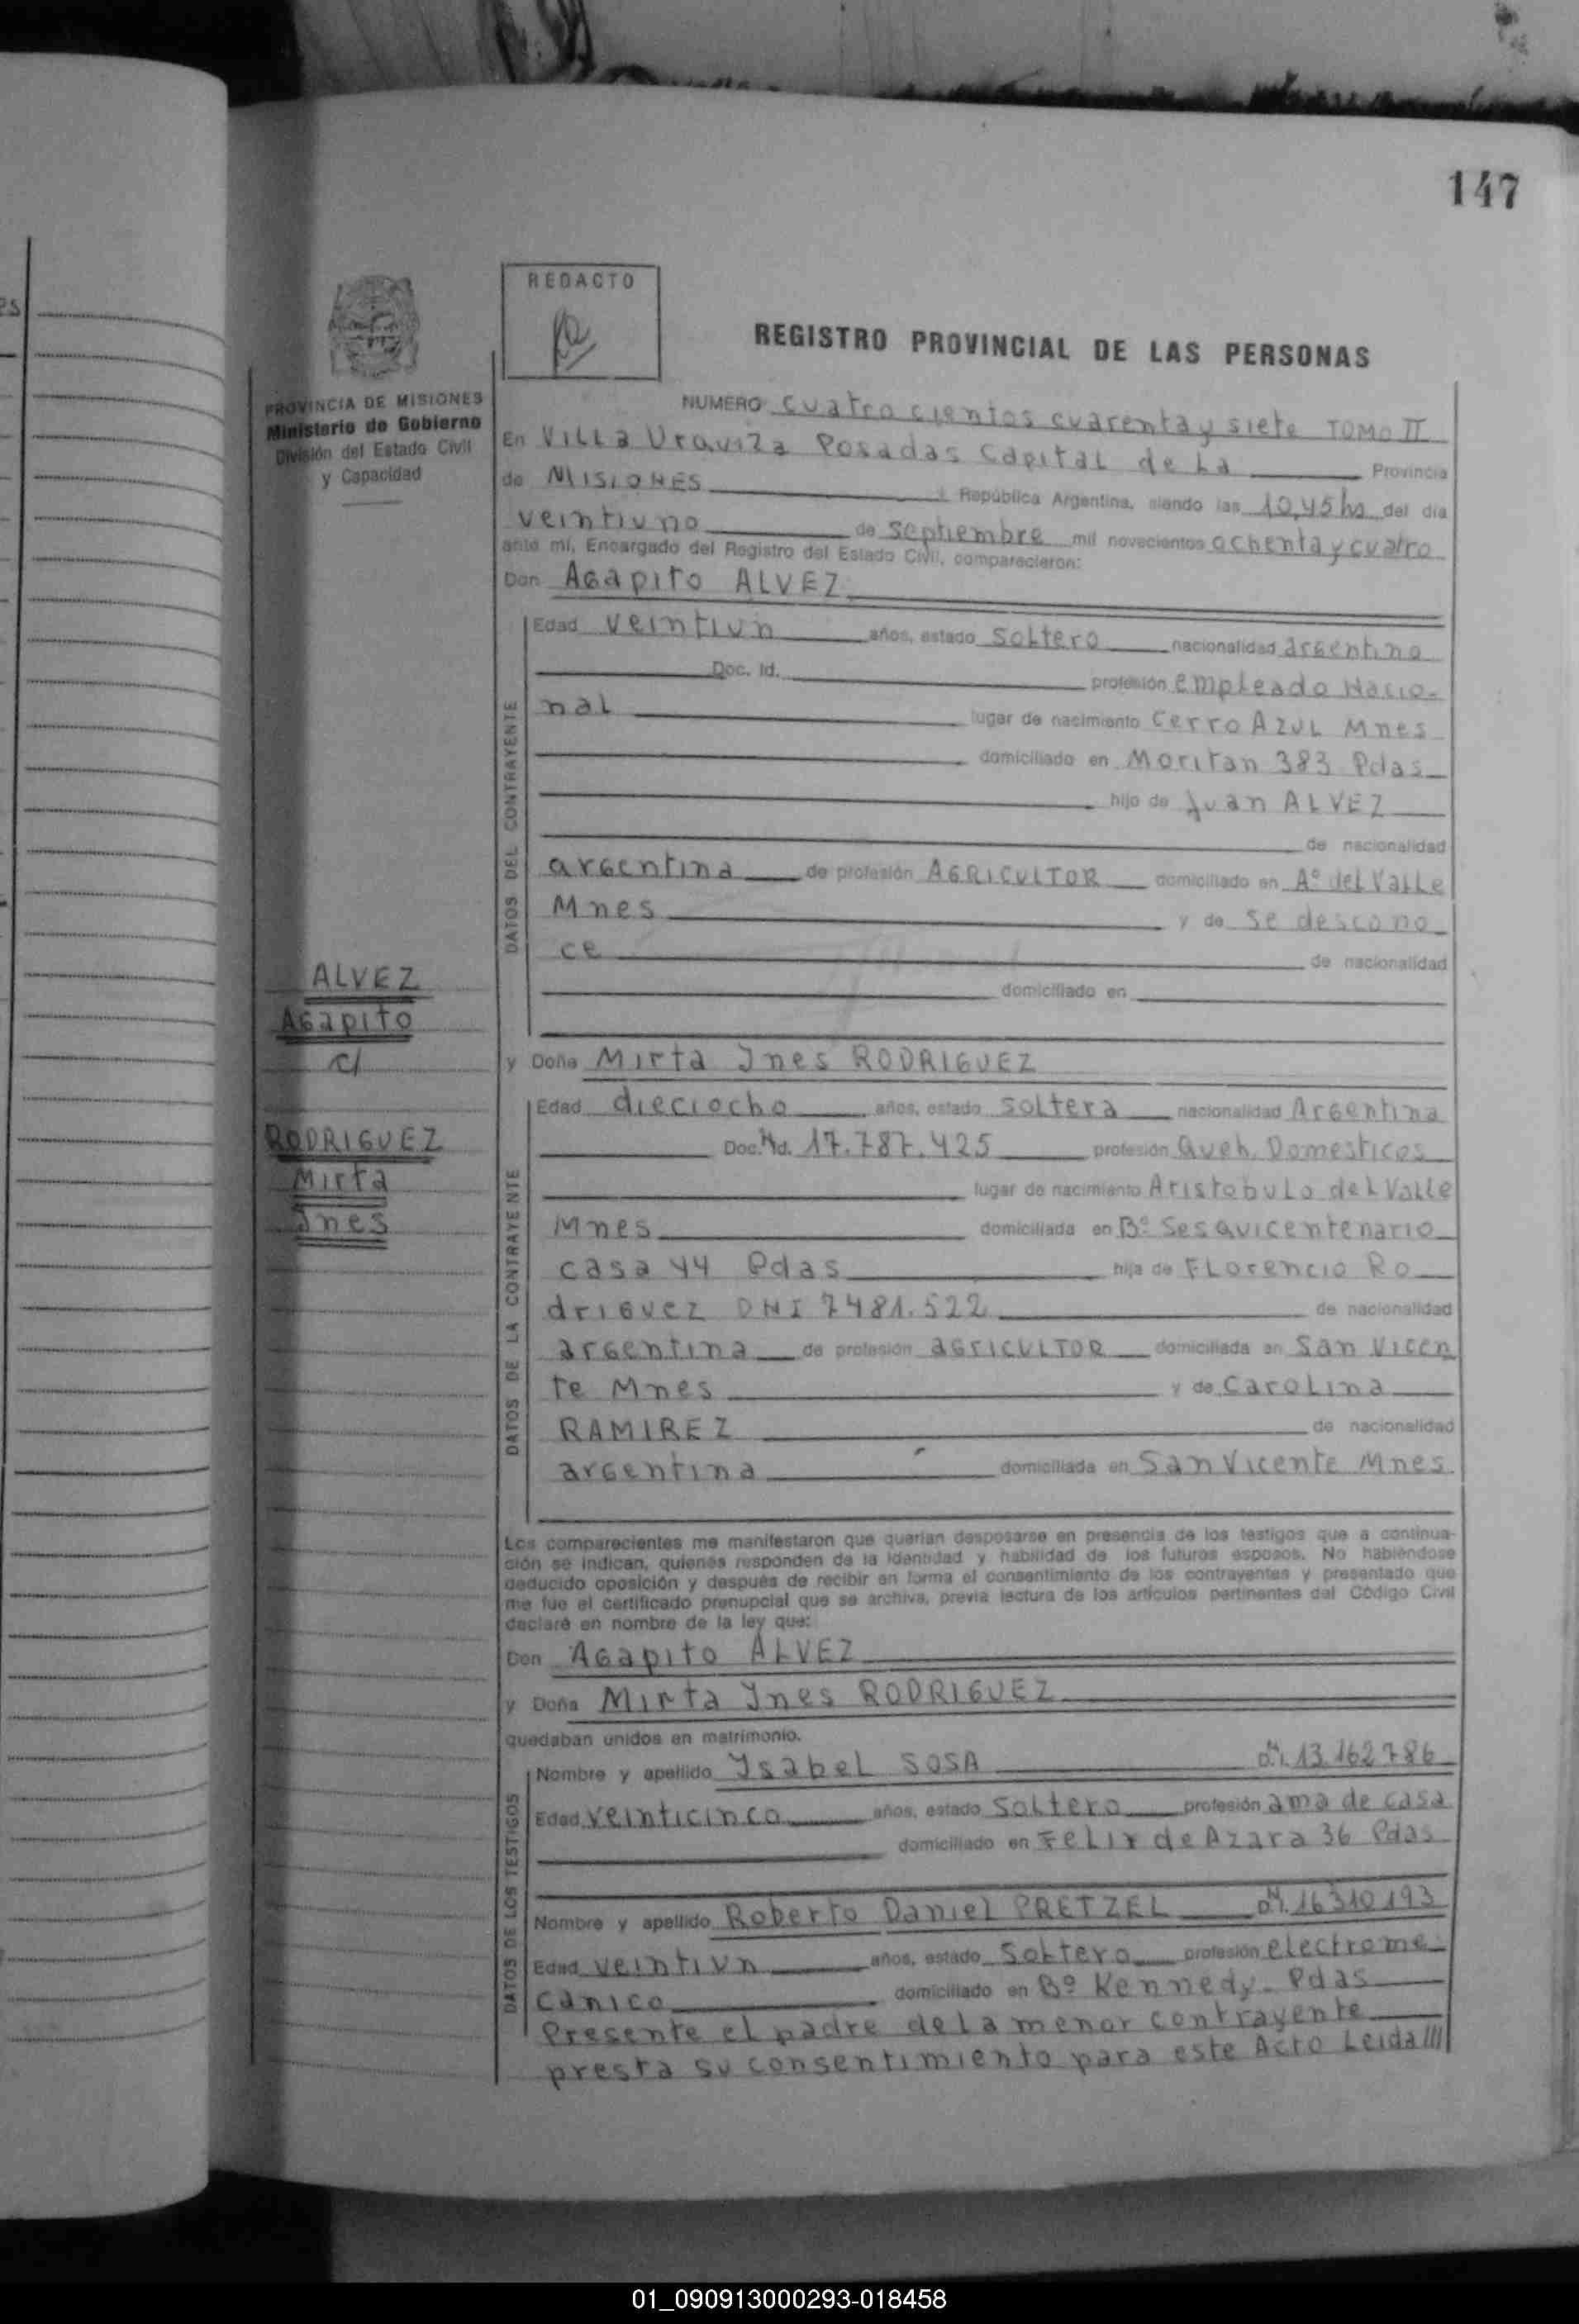 147
REDACTO
REGISTRO PROVINCIAL DE LAS PERSONAS
PROVINCIA DE MISIONES
Ministerio de Gobierno
División del Estado Civil
y Capacidad
NUMERO cuatro cientos cuarenta y siete TOMO II
En Villa Urquiza Posadas Capital de La Provincia
de MISIONES República Argentina, siendo las 10,45 hs del día
veintiuno de septiembre mil novecientos ochenta y cuatro
ante mí, Encargado del Registro del Estado Civil, comparecieron:
Don Agapito ALVEZ
Edad veintiun años, estado soltero nacionalidad argentina
Doc. Id. profesión empleado Nacio-
nal lugar de nacimiento Cerro Azul Mnes
domiciliado en Moritan 383 Pdas
hijo de Juan ALVEZ
de nacionalidad
argentina de profesión AGRICULTOR domiciliado en Aº del Valle
Mnes y de se descono
ce de nacionalidad
domiciliado en
DATOS DEL CONTRAYENTE
ALVEZ
Agapito
c/
RODRIGUEZ
Mirta
Ines
y Doña Mirta Ines RODRIGUEZ
Edad dieciocho años, estado soltera nacionalidad Argentina
Doc. Id. 17.787.425 profesión queh. Domesticos
lugar de nacimiento Aristobulo del Valle
Mnes domiciliada en Bº Sesquicentenario
casa 44 Pdas hija de Florencio Ro
driguez DNI 7481.522 de nacionalidad
argentina de profesión agricultor domiciliada en San Vicen
te Mnes y de Carolina
RAMIREZ de nacionalidad
argentina domiciliada en San Vicente Mnes
DATOS DE LA CONTRAYENTE
Los comparecientes me manifestaron que querían desposarse en presencia de los testigos que a continua-
ción se indican, quienes responden de la identidad y habilidad de los futuros esposos. No habiéndose
deducido oposición y después de recibir en forma el consentimiento de los contrayentes y presentado que
me fue el certificado prenupcial que se archiva, previa lectura de los artículos pertinentes del Código Civil
declaré en nombre de la ley que:
Don Agapito ALVEZ
y Doña Mirta Ines RODRIGUEZ
quedaban unidos en matrimonio.
Nombre y apellido Ysabel SOSA DNI. 13.162.786
Edad veinticinco años, estado soltero profesión ama de casa
domiciliado en Felix de Azara 36 Pdas
Nombre y apellido Roberto Daniel PRETZEL DNI. 16310193
Edad veintiun años, estado soltero profesión electrome
canico domiciliado en Bº Kennedy - Pdas
DATOS DE LOS TESTIGOS
Presente el padre de la menor contrayente
presta su consentimiento para este Acto Leida///
01_090913000293-018458